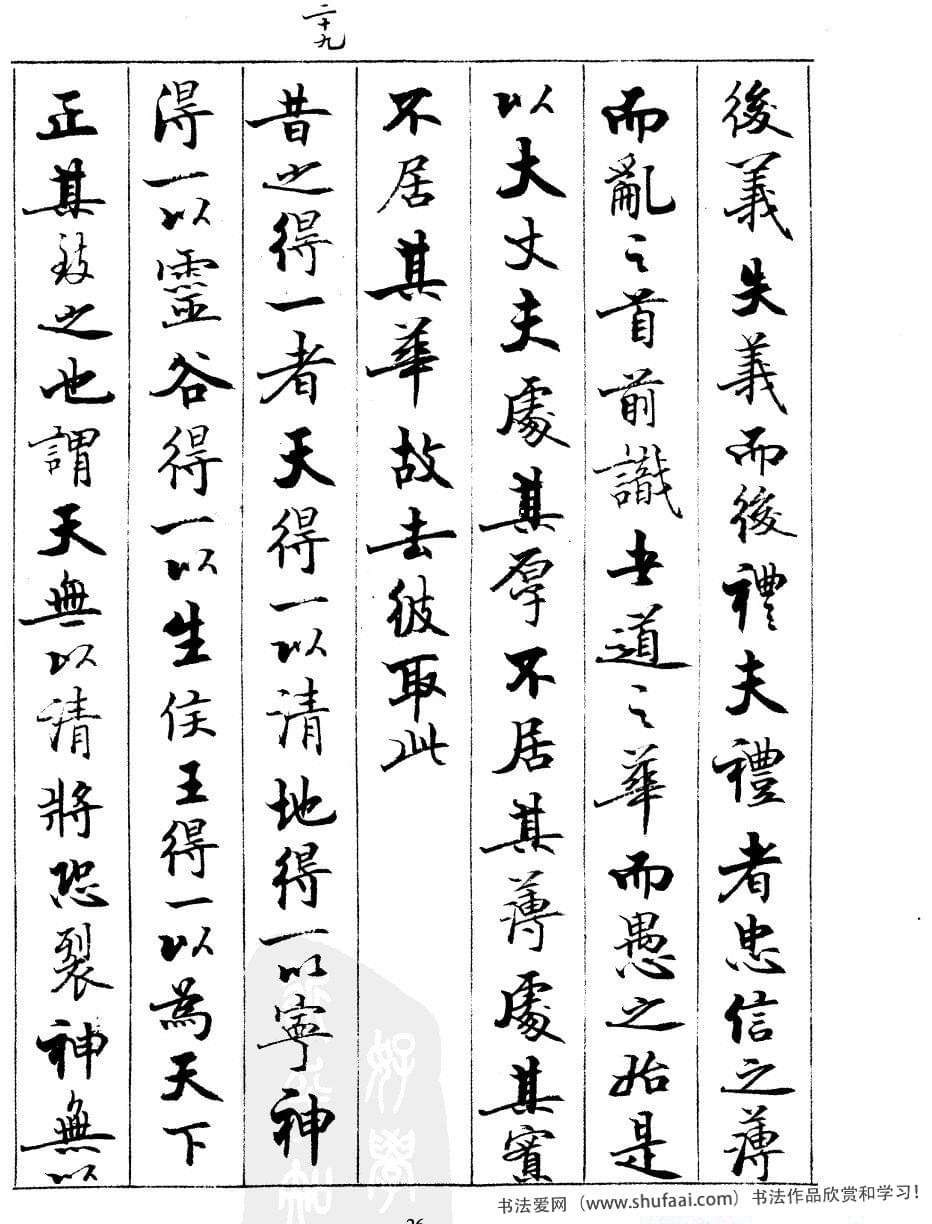 二十九
後義失義而後禮夫禮者忠信之薄
而亂之首前識者道之華而愚之始是
以大丈夫處其厚不居其薄處其實
不居其華故去彼取此
昔之得一者天得一以清地得一以寧神
得一以靈谷得一以生侯王得一以為天下
正其致之也謂天無以清將恐裂神無以
书法爱网（www.shufaai.com）书法作品欣赏和学习！